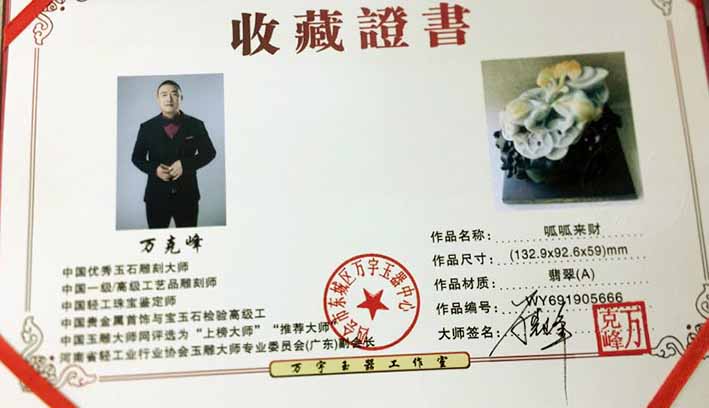 收藏證書
万克峰
中国优秀玉石雕刻大师
中国一级/高级工艺品雕刻师
中国轻工珠宝鉴定师
中国贵金属首饰与宝玉石检验高级工
中国玉雕大师网评选为“上榜大师”“推荐大师”
河南省轻工业行业协会玉雕大师专业委员会(广东)副会长
会市东城区万字玉器中心
作品名称： 呱呱来财
作品尺寸： (132.9×92.6×59)mm
作品材质： 翡翠(A)
作品编号： WY691905666
大师签名：
万克峰
万字玉器工作室